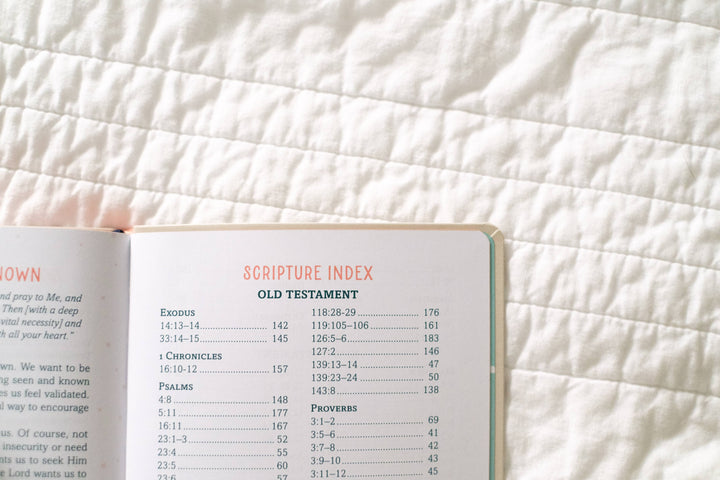 NOWN
nd pray to Me, and
Then [with a deep
vital necessity] and
th all your heart."
own. We want to be
ng seen and known
es us feel validated.
ul way to encourage
us. Of course, not
insecurity or need
nts us to seek Him
e Lord wants us to
SCRIPTURE INDEX
OLD TESTAMENT
EXODUS
14:13–14 142
33:14–15 145
1 CHRONICLES
16:10-12 157
PSALMS
4:8 148
5:11 177
16:11 167
23:1–3 52
23:4 55
23:5 60
23:6 57
118:28-29 176
119:105–106 161
126:5–6 183
127:2 146
139:13–14 47
139:23–24 50
143:8 138
PROVERBS
3:1–2 69
3:5–6 41
3:7–8 42
3:9–10 43
3:11–12 45